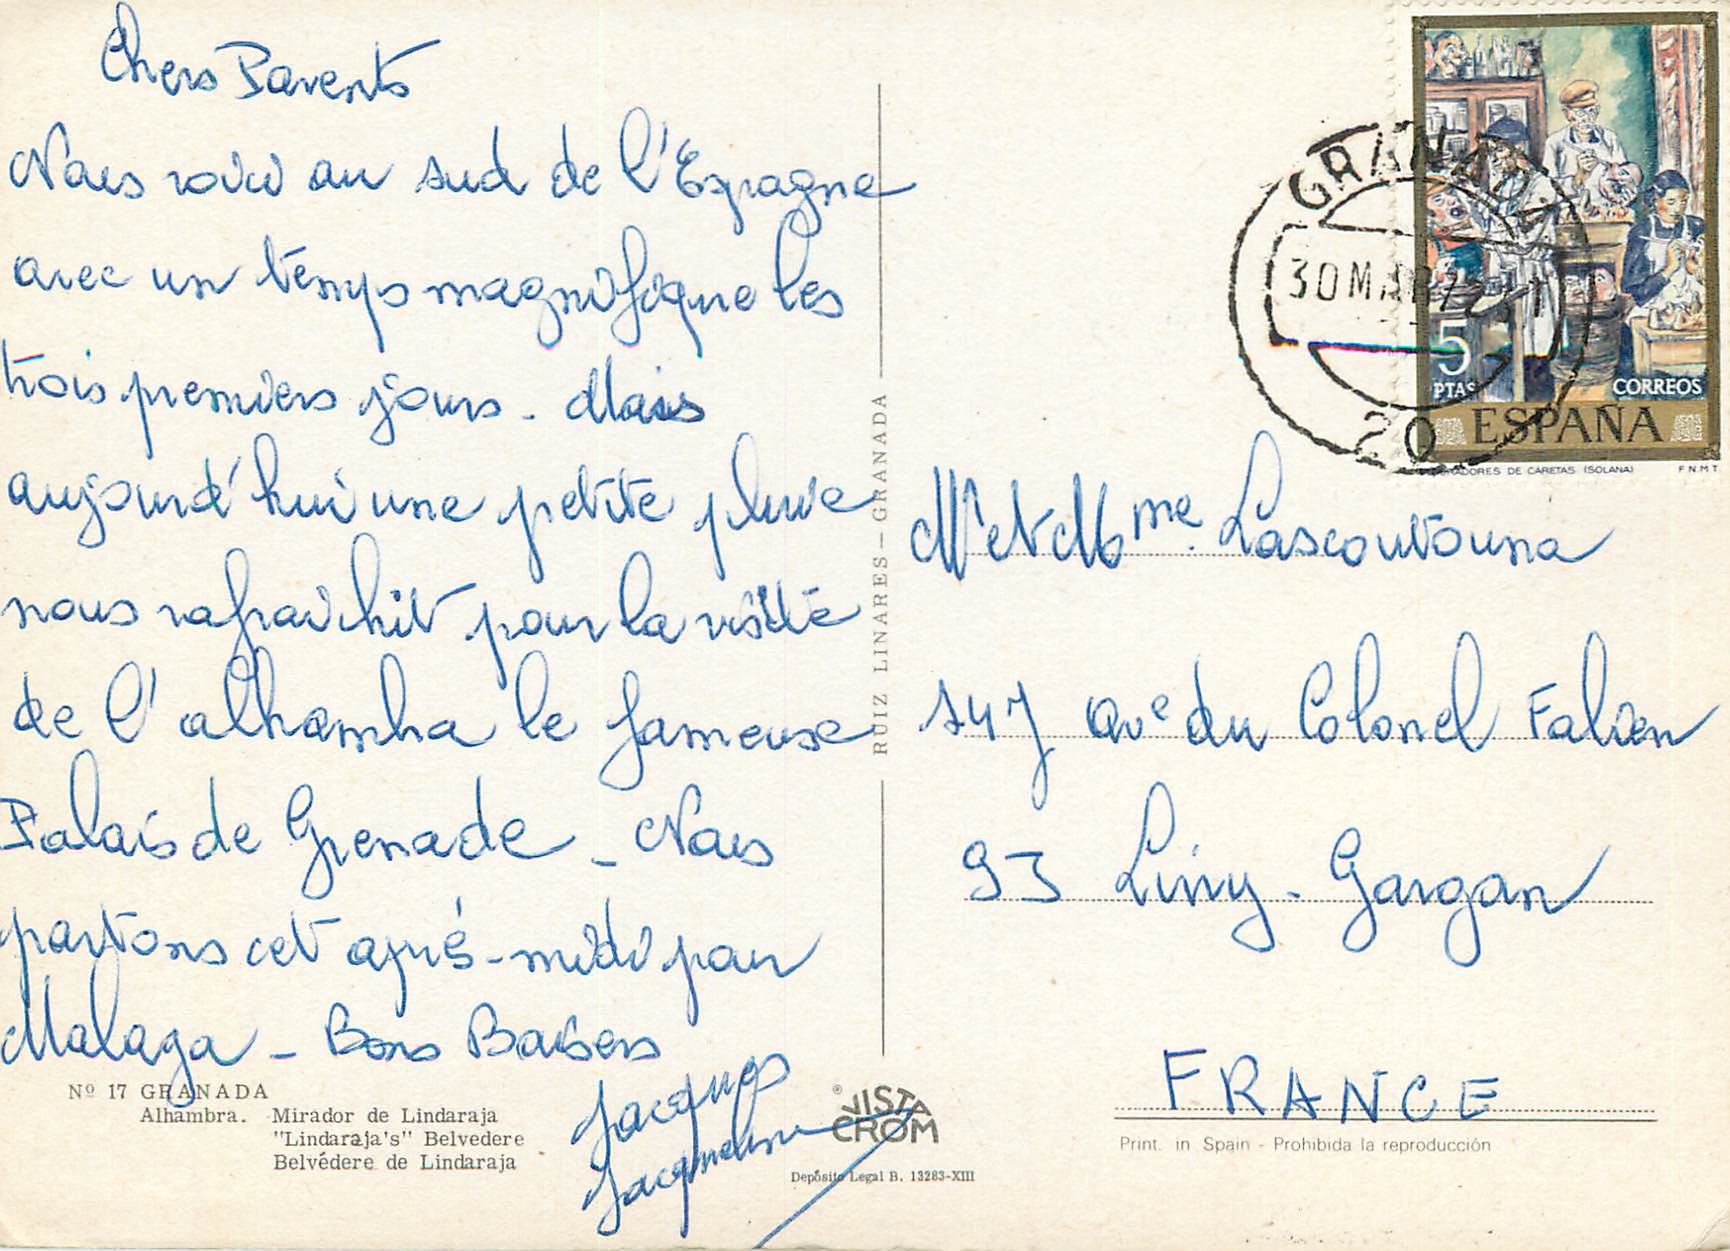 Chers Parents
Nous voici au sud de l'Espagne
avec un temps magnifique les
trois premiers jours - Mais
aujourd'hui une petite pluie
nous rafraichit pour la visite
de l'alhambra le fameuse
Palais de Grenade - Nous
partons cet après-midi pour
Malaga - Bons Baisers
Jacques
Jacqueline
Nº 17 GRANADA
Alhambra. Mirador de Lindaraja
"Lindaraja's" Belvedere
Belvédere de Lindaraja
RUIZ LINARES - GRANADA
® VISTA
CROM
Depósito Legal B. 13283-XIII
GRANADA
30 MAR
20
5
PTAS
CORREOS
ESPAÑA
DORES DE CARETAS (SOLANA)
F N M T
Mr et Mme. Lascoutouna
147 ave du Colonel Fabien
93 Livry-Gargan
FRANCE
Print. in Spain - Prohibida la reproducción